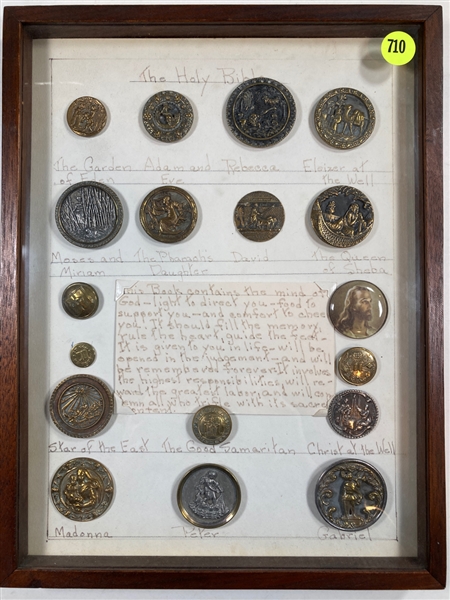 710
The Holy Bible
The Garden Adam and Rebecca Eleizer at
of Eden Eve the Well
Moses and The Pharoh's David The Queen
Miriam Daughter of Sheba
This Book contains the mind of
God-light to direct you-food to
support you-and comfort to cheer
you. It should fill the memory,
rule the heart, guide the feet.
It is given to you in life-will be
opened in the judgement-and will
be remembered forever. It involves
the highest responsibilities, will re-
ward the greatest labor, and will con-
demn all who trifle with its sacred
Star of the East The Good Samaritan Christ at the Well
Madonna Peter Gabriel